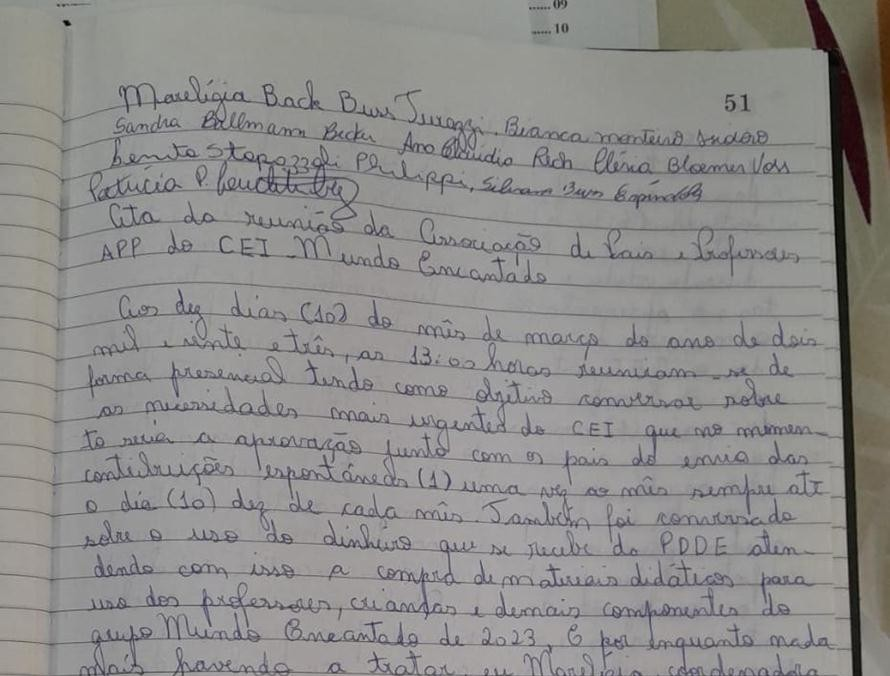 ...... 09
...... 10
51
Marelígia Back Buss Bianca monteiro
Sandra Ballmann Becker Ana Cláudia Rech Clésia Bloemer Voss
Philippi, Silvana Buss Espíndola
Patrícia P.
Ata da reunião da Associação de Pais e Professores
APP do CEI Mundo Encantado
Aos dez dias (10) do mês de março do ano de dois
mil e vinte e três, as 13:00 horas reuniram-se de
forma presencial tendo como objetivo conversar sobre
as necessidades mais urgentes do CEI que no momen-
to seria a aprovação junto com os pais do envio das
contribuições espontâneas (1) uma vez ao mês sempre até
o dia (10) dez de cada mês. Também foi conversado
sobre o uso do dinheiro que se recebe do PDDE aten-
dendo com isso a compra de materiais didáticos para
uso dos professores, crianças e demais componentes do
grupo Mundo Encantado de 2023. E por enquanto nada
mais havendo a tratar, eu Marelígia coordenadora